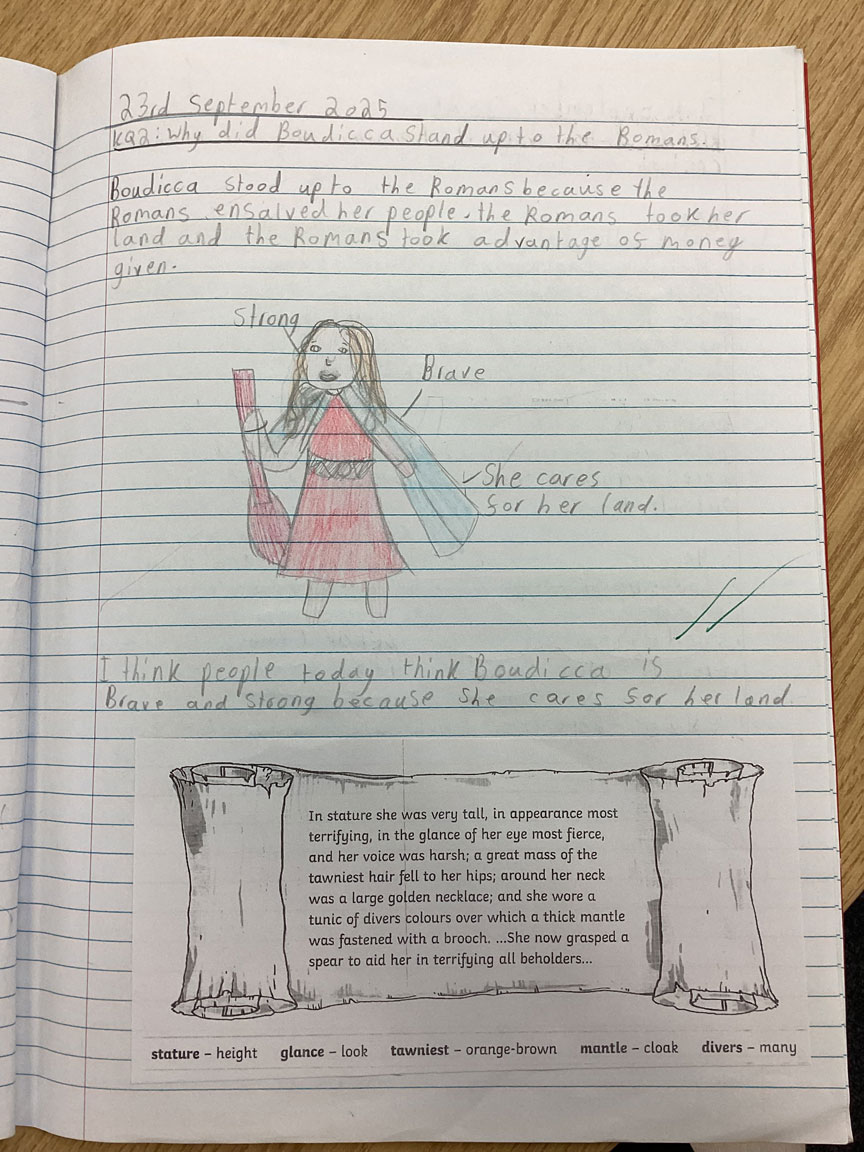 23rd September 2025
KQ2: Why did Boudicca Stand up to the Romans.
Boudicca stood up to the Romans because the
Romans ensalved her people, the Romans took her
land and the Romans took advantage of money
given.
Strong
Brave
She cares
for her land.
I think people today think Boudicca is
Brave and Strong because she cares for her land
In stature she was very tall, in appearance most
terrifying, in the glance of her eye most fierce,
and her voice was harsh; a great mass of the
tawniest hair fell to her hips; around her neck
was a large golden necklace; and she wore a
tunic of divers colours over which a thick mantle
was fastened with a brooch. ...She now grasped a
spear to aid her in terrifying all beholders...
stature – height glance – look tawniest – orange-brown mantle – cloak divers – many